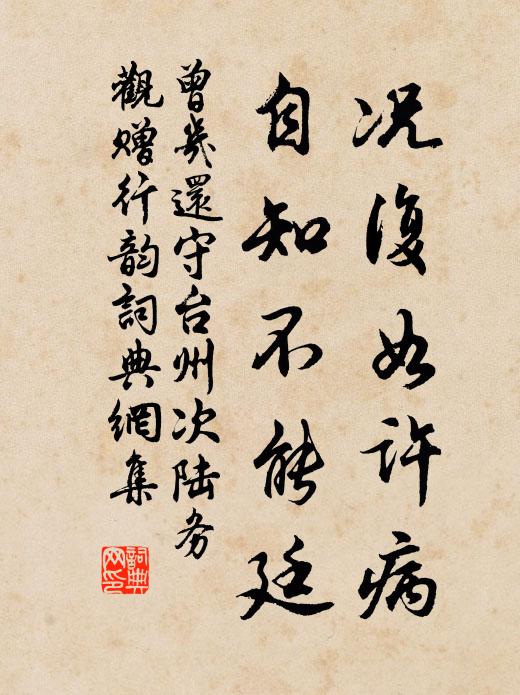 况復如许病
自知不能廷
曾幾還守台州次陆务
觀赠行韵詞典網集
詞典网印